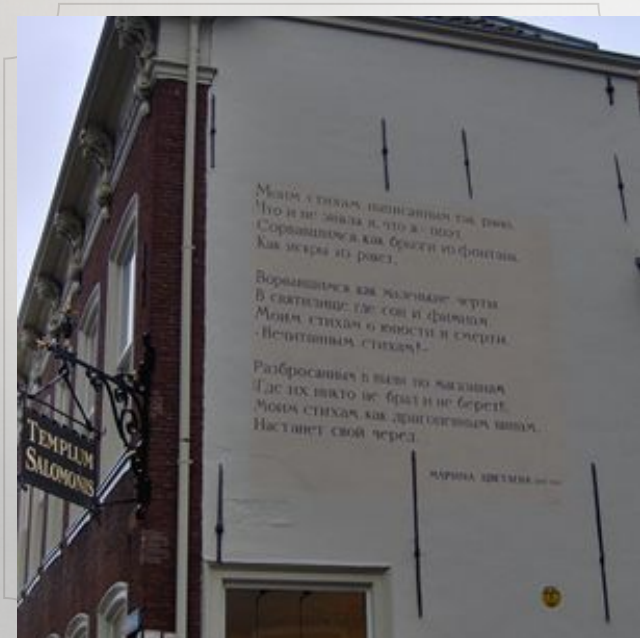 Моим стихам, написанным так рано,
Что и не знала я, что я - поэт,
Сорвавшимся, как брызги из фонтана,
Как искры из ракет,
Ворвавшимся, как маленькие черти,
В святилище, где сон и фимиам,
Моим стихам о юности и смерти,
-Нечитанным стихам!-
Разбросанным в пыли по магазинам
(Где их никто не брал и не берет!),
Моим стихам, как драгоценным винам,
Настанет свой черед.
МАРИНА ЦВЕТАЕВА
TEMPLUM
SALOMONIS